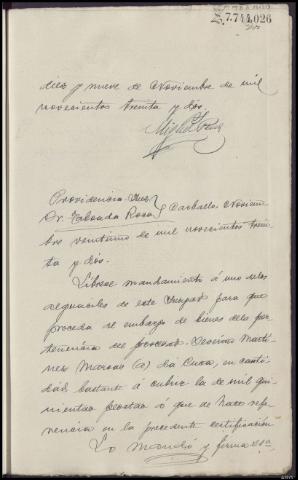 7.744,026
diez y nueve de Noviembre de mil
novecientos treinta y dós.
Providencia Juez
Sr. Taboada Roca } Carballo Noviem-
bre veintiuno de mil novecientos trein-
ta y dós.
Líbrese mandamiento á uno de los
alguaciles de este Juzgado para que
proceda al embargo de bienes de la per-
tenencia del procesado Severino Martí-
nez Maroño (a) da Cuxa, en canti-
dad bastante á cubrir la de mil qui-
nientas pesetas á que se hace refe-
rencia en la precedente certificación
Lo mandó y firma S.Sª